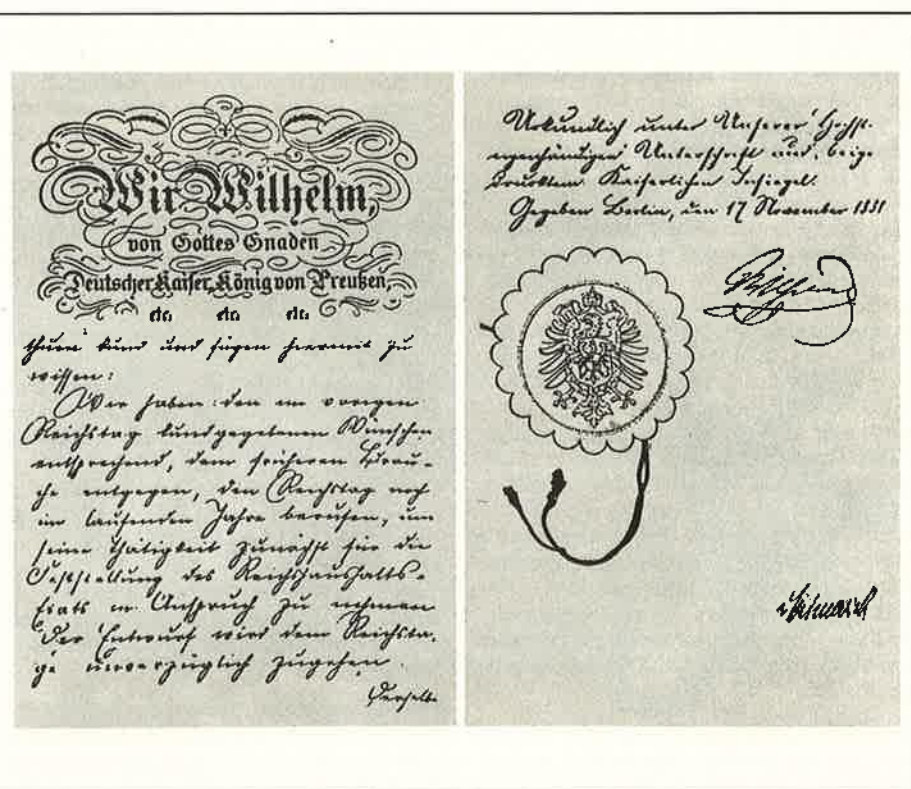 Wir Wilhelm,
von Gottes Gnaden
Deutscher Kaiser, König von Preußen,
etc. etc. etc.
thuen kund und fügen hiermit zu
wissen:
Wir haben den im vorigen
Reichstag kundgegebenen Wünschen
entsprechend, dem früheren Brau-
che entgegen, den Reichstag noch
im laufenden Jahre berufen, um
seine Thätigkeit zunächst für die
Feststellung des Reichshaushalts-
Etats in Anspruch zu nehmen
Der Entwurf wird dem Reichsta-
ge unverzüglich zugehen.
Derselbe
Urkundlich unter Unserer Höchst-
eigenhändigen Unterschrift und beige-
drucktem Kaiserlichen Insiegel.
Gegeben Berlin, den 17 November 1881
Wilhelm
v Bismarck